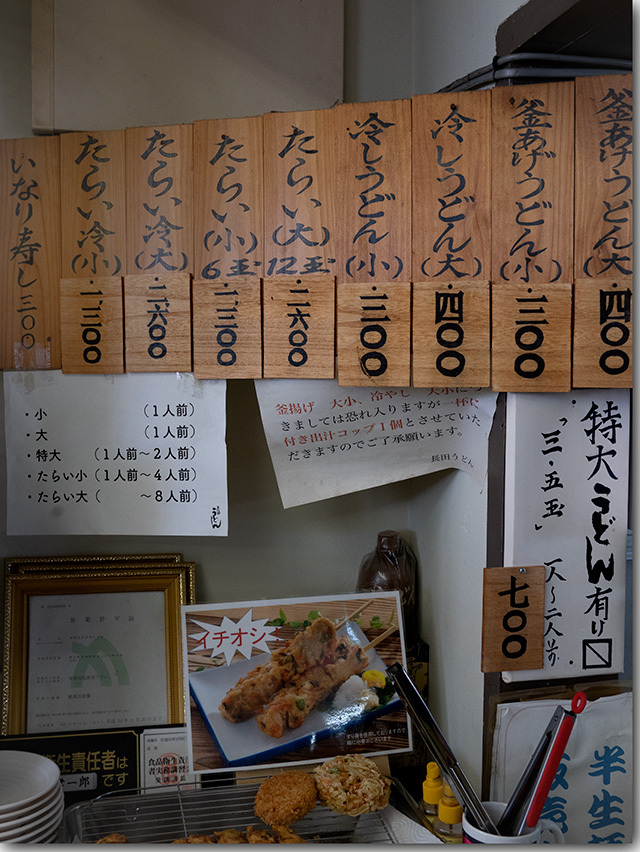 釜あげうどん(大)
・四〇〇
釜あげうどん(小)
・三〇〇
冷しうどん(大)
・四〇〇
冷しうどん(小)
・三〇〇
たらい(大)
12玉
二、六〇〇
たらい(小)
6玉
一、三〇〇
たらい冷(大)
二、六〇〇
たらい冷(小)
一、三〇〇
いなり寿し三〇〇
・小 (1人前)
・大 (1人前)
・特大 (1人前〜2人前)
・たらい小 (1人前〜4人前)
・たらい大 ( 〜8人前)
うどん
釜揚げ 大小、冷やし 大小につ
きましては恐れ入りますが一杯に
付き出汁コップ1個とさせていた
だきますのでご了承願います。
長田うどん
特大うどん有り〼
「三・五玉」
一人〜二人前
七〇〇
イチオシ
営業許可証
生責任者は
一郎 です
食品衛生責任
者実務講習
半生